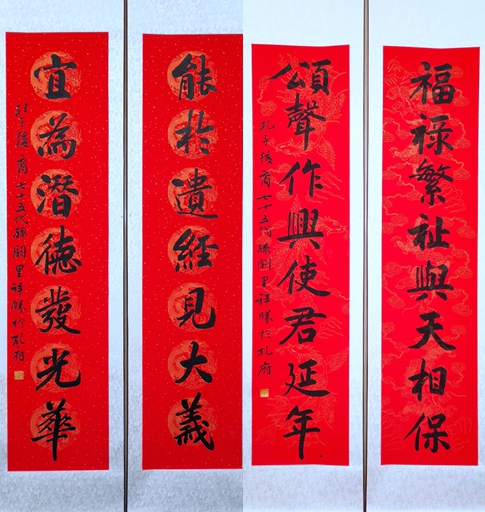 福祿繁祉與天相保
頌聲作興使君延年
孔子後裔七十五代孫祥勝於孔府
能於遺經見大義
宜為潛德發光華
孔子後裔七十五代孫祥勝於孔府